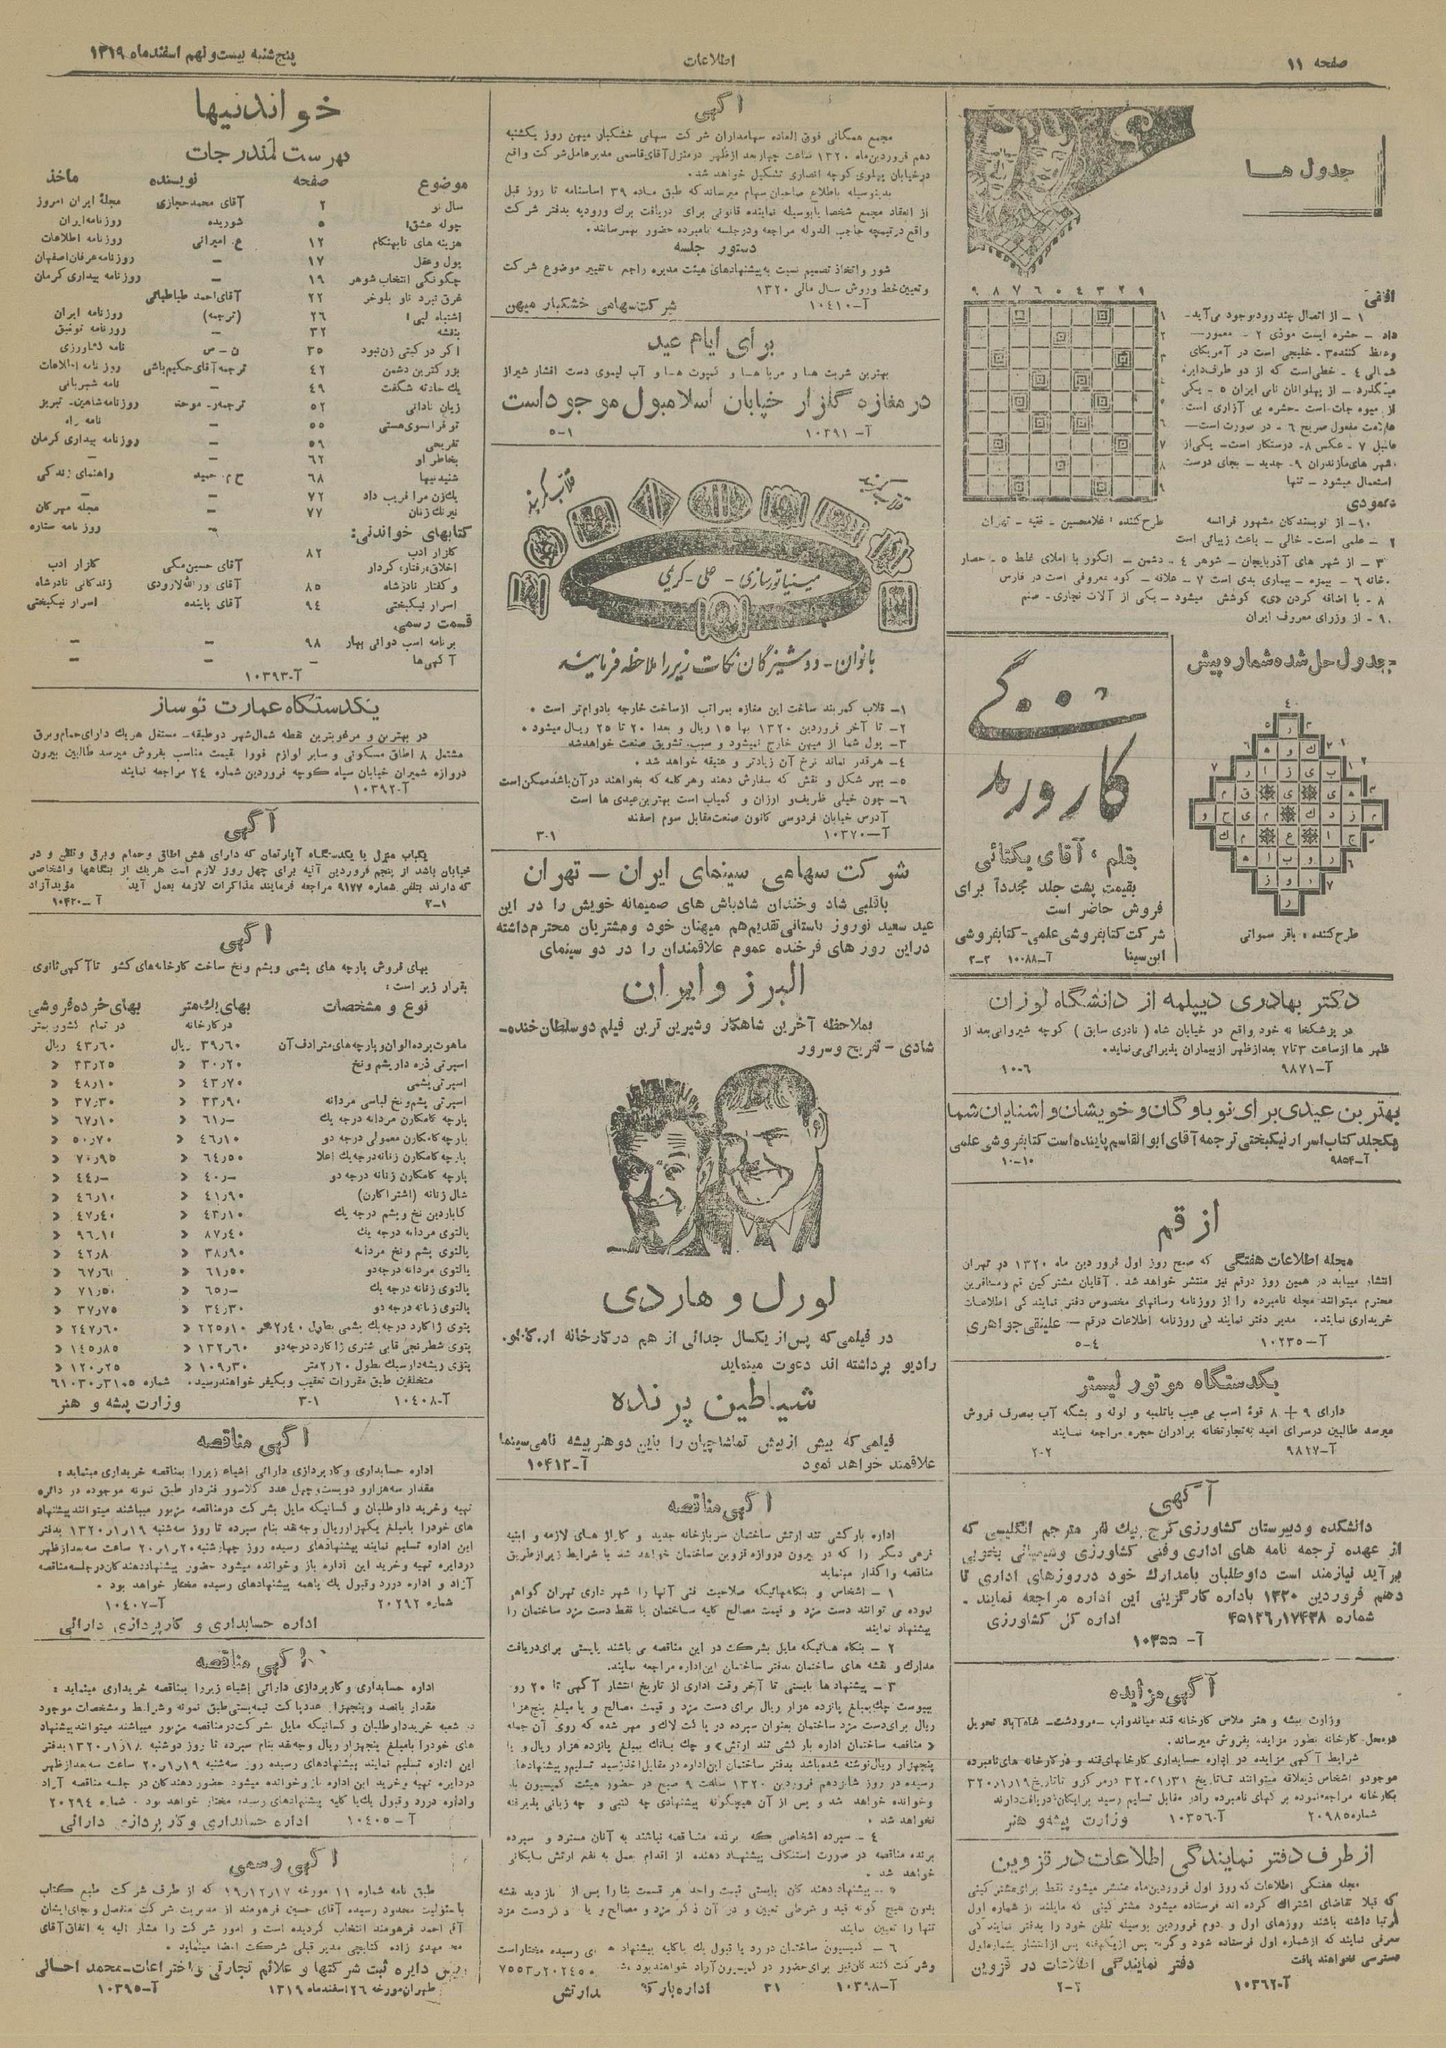 صفحه ۱۱
اطلاعات
پنج‌شنبه بیست و نهم اسفندماه ۱۳۱۹
جدول ها
افقی
۱ - از اتصال چند رود بوجود می‌آید -
شمالی ۴ - خطی است که از دو طرف دایره
میگذرد - از پهلوانان نامی ایران ۵ - یکی
از میوه جات است - حشره بی آزاری است
شهر های مازندران ۹ - جدید - بجای درست
استعمال میشود - تنها
عمودی
۱۰ - از نویسندگان مشهور فرانسه
طرح کننده : غلامحسین - فقیه - تهران
۲ - علمی است - خالی - باعث زیبائی است
۳ - از شهر های آذربایجان - شوهر ۴ - دشمن - انگور با املای غلط ۵ - حصار
خانه ۶ - بیمزه - بیماری بدی است ۷ - علاقه - کوه معروفی است در فارس
۸ - با اضافه کردن «ی» کوشش میشود - یکی از آلات نجاری - صنم
۹ - از وزرای معروف ایران
جدول حل شده شماره پیش
طرح کننده : باقر سمواتی
کارورند
بقلم : آقای یکتائی
بقیمت پشت جلد مجدداً برای
فروش حاضر است
شرکت کتابفروشی علمی - کتابفروشی
ابن سینا
آ - ۱۰۰۸۸
دکتر بهادری دیپلمه از دانشگاه لوزان
در پزشکخانه خود واقع در خیابان شاه ( نادری سابق ) کوچه شیروانی بعد از
ظهر ها از ساعت ۳ تا ۷ بعدازظهر از بیماران پذیرائی می‌نماید.
آ - ۹۸۷۱
۱۰-۶
بهترین عیدی برای نوباوگان و خویشان و آشنایان شما
یکجلد کتاب اسرار نیکبختی ترجمه آقای ابوالقاسم پاینده است کتابفروشی علمی
آ - ۹۸۵۴
۱۰-۱۰
از قم
مجله اطلاعات هفتگی که صبح روز اول فروردین ماه ۱۳۲۰ در تهران
انتشار مییابد در همین روز در قم نیز منتشر خواهد شد. آقایان مشترکین قم و مسافرین
محترم میتوانند مجله نامبرده را از روزنامه رسانهای مخصوص دفتر نمایندگی اطلاعات
خریداری نمایند. مدیر دفتر نمایندگی روزنامه اطلاعات در قم - علینقی جواهری
آ - ۱۰۲۳۵
۵-۴
یکدستگاه موتور لیستر
دارای ۹ + ۸ قوهٔ اسب بی عیب با تلمبه و لوله و بشکه آب بمصرف فروش
میرسد طالبین در سرای امید به تجارتخانه برادران حجره مراجعه نمایند
آ - ۹۸۱۷
۲-۲
آگهی
دانشکده و دبیرستان کشاورزی کرج یک نفر مترجم انگلیسی که
از عهده ترجمه نامه های اداری و فنی کشاورزی و شیمیائی بخوبی
برآید نیازمند است داوطلبان با مدارک خود در روزهای اداری تا
دهم فروردین ۱۳۲۰ باداره کارگزینی این اداره مراجعه نمایند.
شماره ۴۵۱۲۶ر۱۷۴۳۸
اداره کل کشاورزی
آ - ۱۰۳۵۵
آگهی مزایده
وزارت پیشه و هنر ملاس کارخانه قند میاندوآب - مرودشت - شاه‌آباد تحویل
در محل کارخانه بطور مزایده بفروش میرساند.
شرایط آگهی مزایده در اداره حسابداری کارخانهای قند و در کارخانه های نامبرده
شماره ۲۰۹۸۵
آ - ۱۰۳۵۶
وزارت پیشه و هنر
از طرف دفتر نمایندگی اطلاعات در قزوین
مجله هفتگی اطلاعات که روز اول فروردین ماه منتشر میشود فقط برای مشترکینی
که قبلا تقاضای اشتراک کرده اند فرستاده میشود مشترکینی که مایلند از شماره اول
مرتبا داشته باشند روزهای اول و دوم فروردین بوسیله تلفن خود را بدفتر نمایندگی
معرفی نمایند که از شماره اول فرستاده شود
دسترسی نخواهند یافت
دفتر نمایندگی اطلاعات در قزوین
آ - ۱۰۳۶۲
۲-۲
آگهی
مجمع همگانی فوق العاده سهامداران شرکت سهامی خشکبار میهن روز یکشنبه
دهم فروردین ماه ۱۳۲۰ ساعت چهار بعد از ظهر در منزل آقای قاسمی مدیرعامل شرکت واقع
در خیابان پهلوی کوچه انصاری تشکیل خواهد شد.
بدینوسیله باطلاع صاحبان سهام میرساند که طبق ماده ۳۹ اساسنامه تا روز قبل
از انعقاد مجمع شخصا یا بوسیله نماینده قانونی برای دریافت برگ ورودیه بدفتر شرکت
واقع در تیمچه حاجب الدوله مراجعه و در جلسه نامبرده حضور بهمرسانند.
دستور جلسه
شور و اتخاذ تصمیم نسبت به پیشنهادهای هیئت مدیره راجع به تغییر موضوع شرکت
و تعیین خط و روش سال مالی ۱۳۲۰
آ - ۱۰۴۱۰
شرکت سهامی خشکبار میهن
برای ایام عید
بهترین شربت ها و مربا ها و کمپوت ها و آب لیموی دست افشار شیراز
در مغازه گلزار خیابان اسلامبول موجود است
آ - ۱۰۳۹۱
۵-۱
قلاب کمربند
قلاب کمربند
مینیاتورسازی - علی - کریمی
بانوان - دوشیزگان نکات زیر را ملاحظه فرمایند
۱ - قلاب کمربند ساخت این مغازه بمراتب از ساخت خارجه بادوام‌تر است.
۲ - تا آخر فروردین ۱۳۲۰ بها ۱۵ ریال و بعدا ۲۰ تا ۲۵ ریال میشود.
۳ - پول شما از میهن خارج نمیشود و سبب تشویق صنعت خواهد شد
۴ - هر قدر بماند نرخ آن زیادتر و عتیقه خواهد شد.
۵ - بهر شکل و نقش که سفارش دهند و هر کلمه که بخواهند در آن باشد ممکن است
۶ - چون خیلی ظریف و ارزان و کمیاب است بهترین عیدی ها است
آدرس خیابان فردوسی کانون صنعت مقابل سوم اسفند
آ - ۱۰۳۷۰
۳-۱
شرکت سهامی سینمای ایران - تهران
با قلبی شاد و خندان شادباش های صمیمانه خویش را در این
عید سعید نوروز باستانی تقدیم هم میهنان خود و مشتریان محترم داشته
در این روز های فرخنده عموم علاقمندان را در دو سینمای
البرز و ایران
بملاحظه آخرین شاهکار و شیرین ترین فیلم دو سلطان خنده -
شادی - تفریح و سرور
لورل و هاردی
در فیلمی که پس از یکسال جدائی از هم در کارخانه ار.کا.او.
رادیو برداشته اند دعوت مینماید
شیاطین پرنده
فیلمی که بیش از پیش تماشاچیان را باین دو هنرپیشه نامی سینما
علاقمند خواهد نمود
آ - ۱۰۴۱۲
آگهی مناقصه
اداره بارکشی تند ارتش ساختمان سربازخانه جدید و گاراژ های لازمه و ابنیه
فرعی دیگر را که در بیرون دروازه قزوین ساختمان خواهد شد با شرایط زیر از طریق
مناقصه واگذار مینماید
۱ - اشخاص و بنگاههائیکه صلاحیت فنی آنها را شهرداری تهران گواهی
نموده می توانند دست مزد و قیمت مصالح کلیه ساختمان یا فقط دست مزد ساختمان را
پیشنهاد نمایند
۲ - بنگاه هائیکه مایل بشرکت در این مناقصه می باشند بایستی برای دریافت
مدارک و نقشه های ساختمان بدفتر ساختمان این اداره مراجعه نمایند.
۳ - پیشنهادها بایستی تا آخر وقت اداری از تاریخ انتشار آگهی تا ۲۰ روز
بپیوست چک بمبلغ پانزده هزار ریال برای دست مزد و قیمت مصالح و یا مبلغ پنج هزار
ریال برای دست مزد ساختمان بعنوان سپرده در پاکت لاک و مهر شده که روی آن جمله
« مناقصه ساختمان اداره بارکشی تند ارتش » و چک بانک بمبلغ پانزده هزار ریال و یا
پنجهزار ریال نوشته شده باشد بدفتر ساختمان این اداره در مقابل اخذ رسید تسلیم و پیشنهادهای
رسیده در روز شانزدهم فروردین ۱۳۲۰ ساعت ۹ صبح در حضور هیئت کمیسیون باز
وخوانده خواهد شد و پس از آن هیچگونه پیشنهادی چه کتبی و چه زبانی پذیرفته
نخواهد شد.
۴ - سپرده اشخاصی که برنده مناقصه نباشند به آنان مسترد و سپرده
برنده مناقصه در صورت استنکاف پیشنهاد دهنده از اقدام عمل به نفع ارتش بایگانی
خواهد شد.
۵ - پیشنهاد دهندگان بایستی قیمت واحد هر قسمت بنا را پس از بازدید نقشه
تنها را تعیین نمایند
۶ - کمیسیون ساختمان در رد یا قبول یک یا کلیه پیشنهادهای رسیده مختار است
آ - ۱۰۳۹۸
خواندنیها
فهرست مندرجات
موضوع صفحه نویسنده مأخذ
سال نو ۲ آقای محمد حجازی مجلهٔ ایران امروز
چوله عشق! ۵ شوریده روزنامه ایران
هزینه های نابهنگام ۱۲ ع. امیرانی روزنامه اطلاعات
پول و عقل ۱۷ - روزنامه عرفان اصفهان
چگونگی انتخاب شوهر ۱۹ - روزنامه بیداری کرمان
غرق نبرد ناو بلوخر ۲۲ آقای احمد طباطبائی
اشتباه لبی! ۲۶ (ترجمه) روزنامه ایران
بنفشه ۳۲ - روزنامه توفیق
اگر در گیتی زن نبود ۳۵ ن - س نامه کشاورزی
بزرگترین دشمن ۴۲ ترجمه آقای حکیم باشی روزنامه اطلاعات
یک حادثه شگفت ۴۹ - نامه شهربانی
زبان نادانی ۵۲ ترجمه ر. موحد روزنامه شاهین - تبریز
تو فرانسوی هستی ۵۵ - نامه راه
تفریحی ۵۹ - روزنامه بیداری کرمان
بخاطر او ۶۲ - -
شنیدنیها ۶۸ ح م. حمید راهنمای زندگی
یک زن مرا فریب داد ۷۲ - -
نیرنگ زنان ۷۷ - مجله مهرگان
کتابهای خواندنی: روزنامه ستاره
گلزار ادب ۸۲ آقای حسین مکی گلزار ادب
اخلاق، رفتار، کردار
و گفتار نادرشاه ۸۵ آقای نورالله لارودی زندگانی نادرشاه
اسرار نیکبختی ۹۴ آقای پاینده اسرار نیکبختی
قسمت رسمی:
برنامه اسب دوانی بهار ۹۸ - -
آگهی‌ها - - -
آ - ۱۰۳۹۳
یکدستگاه عمارت نوساز
در بهترین و مرغوبترین نقطه شمال شهر دو طبقه - مستقل هر یک دارای حمام و برق
مشتمل ۸ اطاق مسکونی و سایر لوازم فوراً بقیمت مناسب بفروش میرسد طالبین بیرون
دروازه شمیران خیابان سپاه کوچه فروردین شماره ۲۴ مراجعه نمایند
آ - ۱۰۳۹۲
آگهی
یکباب منزل یا یکدستگاه آپارتمان که دارای شش اطاق و حمام و برق و تلفن و در
خیابان باشد از پنجم فروردین آتیه برای چهل روز لازم است هر یک از بنگاهها و اشخاصی
که دارند بتلفن شماره ۹۱۷۷ مراجعه فرمایند مذاکرات لازمه بعمل آید. مؤید آزاد
۲-۱
آ - ۱۰۴۲۰
آگهی
بهای فروش پارچه های پشمی و پشم و نخ ساخت کارخانه‌های کشور تا آگهی ثانوی
بقرار زیر است :
نوع و مشخصات بهای یک متر بهای خرده فروشی
در کارخانه در تمام کشور بمتر
ماهوت برده الوان و پارچه های مترادف آن ۳۹٫۶۰ ریال ۴۳٫۶۰ ریال
اسپرتی ذره دار پشم و نخ ۳۰٫۲۰ » ۳۳٫۲۵ »
اسپرتی پشمی ۴۳٫۷۰ » ۴۸٫۱۰ »
اسپرتی پشم و نخ لباسی مردانه ۳۳٫۹۰ » ۳۷٫۳۰ »
پارچه کامگارن مردانه درجه یک ۶۱٫- » ۶۷٫۱۰ »
پارچه کامگارن معمولی درجه دو ۴۶٫۱۰ » ۵۰٫۷۰ »
پارچه کامگارن زنانه درجه یک اعلا ۶۴٫۵۰ » ۷۰٫۹۵ »
پارچه کامگارن زنانه درجه دو ۴۰٫- » ۴۴٫- »
شال زنانه (اشتراکارن) ۴۱٫۹۰ » ۴۶٫۱۰ »
گاباردین نخ و پشم درجه یک ۴۳٫۱۰ » ۴۷٫۴۰ »
پالتوی مردانه درجه یک ۸۷٫۴۰ » ۹۶٫۱۰ »
پالتوی پشم و نخ مردانه ۳۸٫۹۰ » ۴۲٫۸۰ »
پالتوی مردانه درجه دو ۶۱٫۵۰ » ۶۷٫۶۰ »
پالتوی زنانه درجه یک ۶۵٫- » ۷۱٫۵۰ »
پالتوی زنانه درجه دو ۳۴٫۳۰ » ۳۷٫۷۵ »
پتوی ژاکارد درجه یک پشمی بطول ۲٫۴۰ متر ۲۲۵٫۱۰ ۲۴۷٫۶۰ »
پتوی شطرنجی قابی شتری ژاکارد درجه دو ۱۳۲٫۶۰ » ۱۴۵٫۸۵ »
پتوی ریشه دار سبک بطول ۲٫۲۰ متر ۱۰۹٫۳۰ » ۱۲۰٫۲۵ »
متخلفین طبق مقررات تعقیب و بکیفر خواهند رسید. شماره ۶۱۰۳۰٫۳۱۰۵
آ - ۱۰۴۰۸
۳-۱
وزارت پیشه و هنر
آگهی مناقصه
اداره حسابداری و کارپردازی دارائی اشیاء زیر را بمناقصه خریداری مینماید :
مقدار سه هزار و دویست و چهل عدد کلاسور فنردار طبق نمونه موجوده در دائره
تهیه و خرید داوطلبان و کسانیکه مایل بشرکت در مناقصه مزبور میباشند میتوانند پیشنهاد
های خود را با مبلغ یکهزار ریال وجه نقد بنام سپرده تا روز سه شنبه ۱۹ر۱ر۱۳۲۰ بدفتر
این اداره تسلیم نمایند پیشنهادهای رسیده روز چهارشنبه ۲۰ر۱ر۲۰ ساعت سه بعد از ظهر
در دایره تهیه و خرید این اداره باز و خوانده میشود حضور پیشنهاد دهندگان در جلسه مناقصه
آزاد و اداره در رد و قبول یک یا همه پیشنهادهای رسیده مختار خواهد بود.
شماره ۲۰۲۹۲
آ - ۱۰۴۰۷
اداره حسابداری و کارپردازی دارائی
آگهی مناقصه
اداره حسابداری و کارپردازی دارائی اشیاء زیر را بمناقصه خریداری مینماید :
مقدار پانصد و پنجهزار عدد پاکت نیمه پستی طبق نمونه و شرایط و مشخصات موجود
در شعبه خرید داوطلبان و کسانیکه مایل بشرکت در مناقصه مزبور میباشند میتوانند پیشنهاد
های خود را با مبلغ پنجهزار ریال وجه نقد بنام سپرده تا روز دوشنبه ۱۸ر۱ر۱۳۲۰ بدفتر
این اداره تسلیم نمایند پیشنهادهای رسیده روز سه شنبه ۱۹ر۱ر۲۰ ساعت سه بعد از ظهر
در دایره تهیه و خرید این اداره باز و خوانده میشود حضور دهندگان در جلسه مناقصه آزاد
و اداره در رد و قبول یک یا کلیه پیشنهادهای رسیده مختار خواهد بود. شماره ۲۰۲۹۴
آ - ۱۰۴۰۵
اداره حسابداری و کارپردازی دارائی
آگهی رسمی
طبق نامه شماره ۱۱ مورخه ۱۷ر۱۲ر۱۹ که از طرف شرکت طبع کتاب
با مسئولیت محدود رسیده آقای حسین فرهومند از مدیریت شرکت منفصل و بجای ایشان
آقای احمد فرهومند انتخاب گردیده است و امور شرکت را مشار الیه به اتفاق آقای
محمد مهدی زاده کتابچی مدیر قبلی شرکت امضا مینماید.
رئیس دایره ثبت شرکتها و علائم تجارتی و اختراعات - محمد احسانی
طهران مورخه ۲۶ اسفند ماه ۱۳۱۹
آ - ۱۰۳۹۵